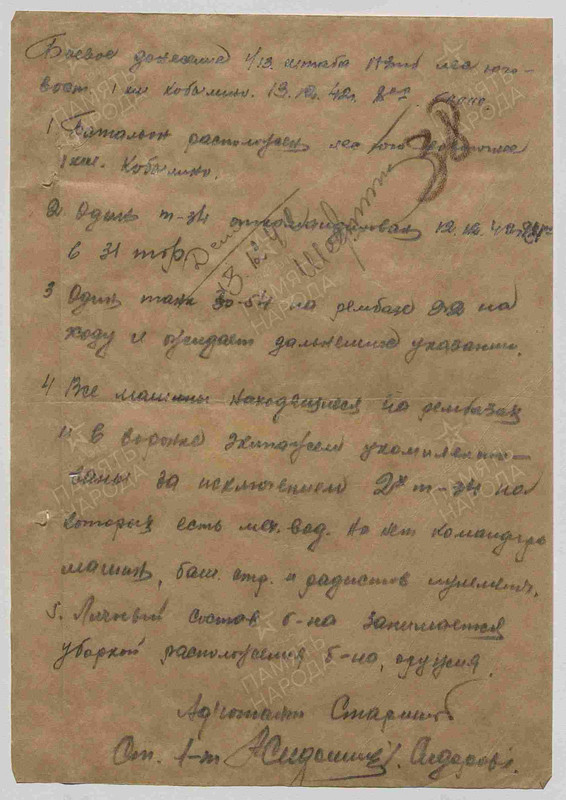 Боевое донесение 1/13. штаба
1 км Кобылино. 13.12.42. 8
38
1 Батальон расположен лес юго
1 км. Кобылино.
2. Один т-34 откомандирован 12.12.42
в 31 тбр
13.12.42
3 Один танк на рембазе на
ходу и ожидает дальнейших указаний.
4 Все машины находящиеся на рембазах
и в экипажем укомплекто-
ваны за исключением 2х т-34 на
которых есть мех. вод. но нет командира
машин, баш. стр. и радистов пулеметч.
5. Личный состав б-на занимается
уборкой расположения б-на, оружия.
Адъютант Старший
Ст. л-т Сидоров
ПАМЯТЬ
НАРОДА